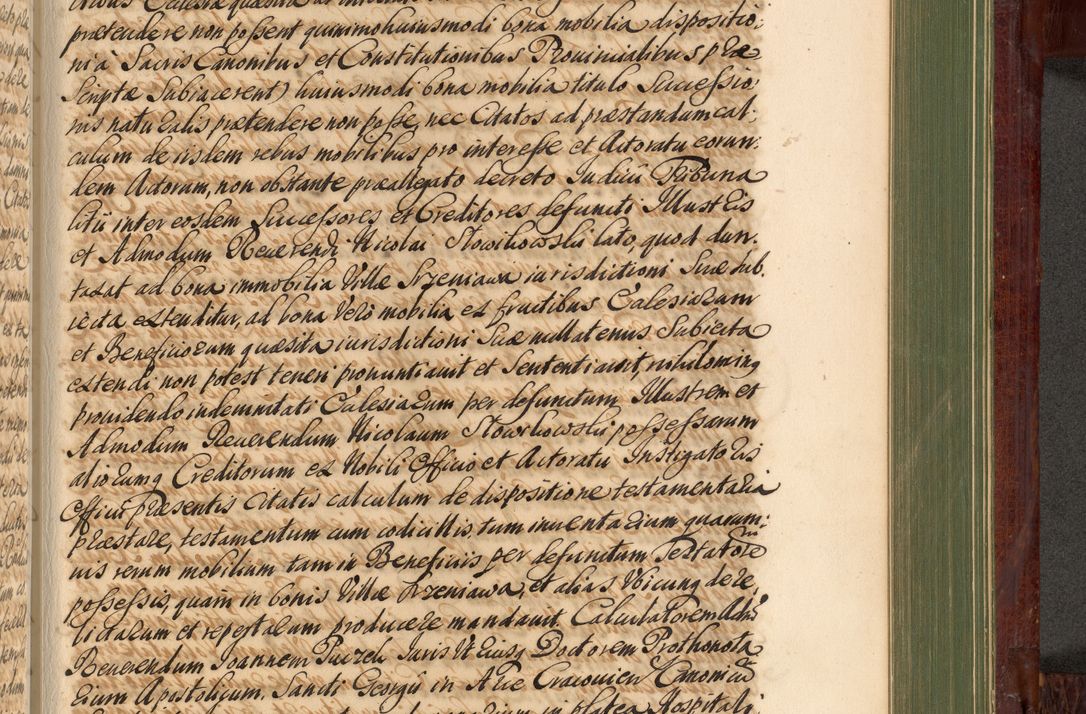 prætendere non possent quinimo huiusmodi bona mobilia dispositio:
ni a Sacris Canonibus et Constitutionibus Prouincialibus præ
scriptæ Subiacerent) huiusmodi bona mobilia titulo Successio
nis naturalis prætendere non posse, nec Citatos ad præstandum cal:
culum de iisdem rebus mobilibus pro interesse et Actoratu eorun:
dem Actorum, non obstante præallegato decreto Iudicii Tribuna
litii inter eosdem Successores et Creditores defuncti Illustris
et Admodum Reuerendi Nicolai Słowikowski lato, quod dun:
taxat ad bona immobilia Villæ Srzeniawa iurisdictioni Suæ sub
iecta extenditur, ad bona Vero mobilia ex fructibus Ecclesiarum
et Beneficiorum quæsita iurisdictioni Suæ nullatenus Subiecta
extendi non potest teneri pronuntiauit et Sententiauit, nihilominq
prouidendo indemnitati Ecclesiarum per defunctum Illustrem et
Admodum Reuerendum Nicolaum Słowikowski possessarum
aliorumq Creditorum ex Nobili Officio et Actoratu Instigatoris
Officii Præsentis Citatis calculum de dispositione testamentaria
Præstare, testamentum cum codicillis, tum inuentarium quarum:
uis rerum mobilium tam in Beneficiis per defunctum Testatorem
possessis, quam in bonis Villæ Srzeniawa, et alias Vbicunq dere,
lictarum et repertarum producere mandauit. Calculatorem Adm
Reuerendum Ioannem Iuris Vt Eiusq Doctorem Prothonota
rium Apostolicum, Sancti Georgii in Arce Cracouien Canonicum
in platea Hospitali